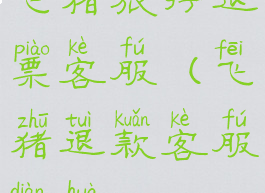 飞猪旅行退
piào kè fú fēi
票客服（飞
zhū tuì kuǎn kè fú
猪退款客服
diàn huà